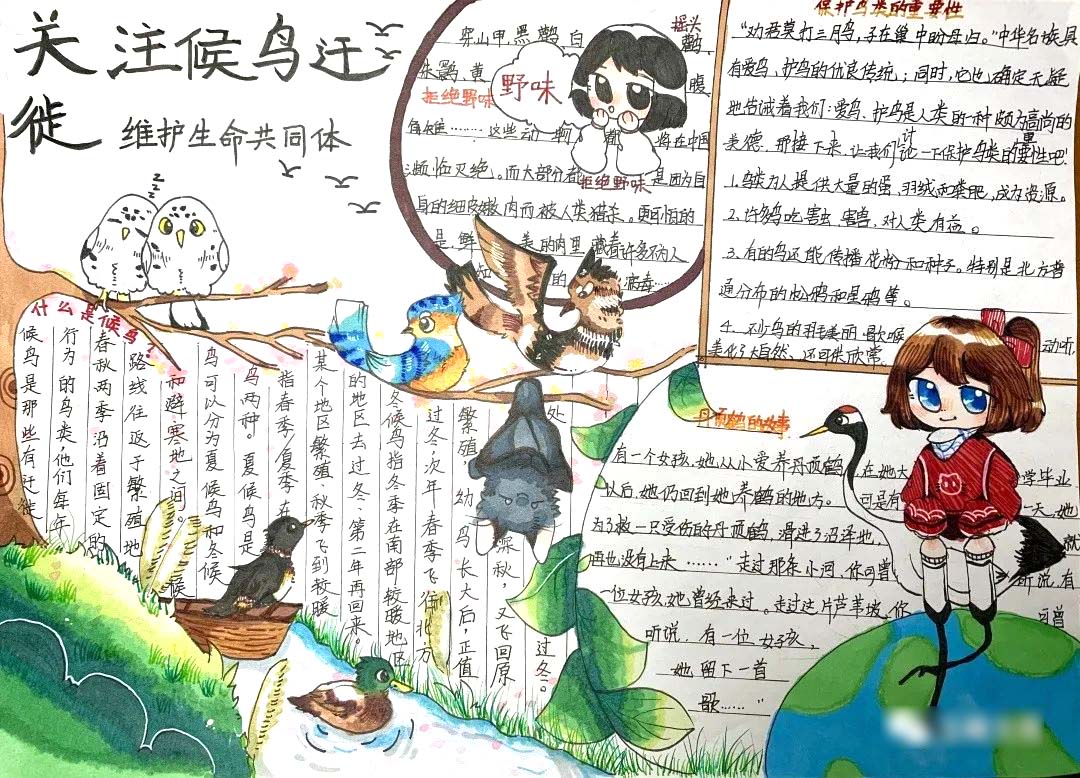 关注候鸟迁
徙
维护生命共同体
穿山甲,黑鹳,白
鹮、黄
拒绝野味
野味
……这些动物都将在中国
濒临灭绝。而大部分都是因为自
拒绝野味
身的细皮嫩肉而被人类猎杀。更可怕的
是,鲜美的肉里,藏着许多不为人
知的病毒……
保护鸟类的重要性
“劝君莫打三月鸟,子在巢中盼母归。”中华名族具
有爱鸟、护鸟的优良传统;同时,它也确定无疑
地告诫着我们:爱鸟、护鸟是人类的一种颇为高尚的
美德。那接下来,让我们讨论一下保护鸟类的重要性吧!
1.鸟类为人提供大量的蛋、羽绒和粪肥,成为资源。
2.许多鸟吃害虫、害兽,对人类有益。
3.有的鸟还能传播花粉和种子。特别是北方普
遍分布的松鸦和星鸦等。
4.不少鸟的羽毛美丽,歌喉动听,
美化了大自然、还可供欣赏。
什么是候鸟?
候鸟是那些有迁徙
行为的鸟类,他们每年
春秋两季沿着固定的
路线往返于繁殖地
和避寒地之间。候
鸟可以分为夏候鸟和冬候
鸟两种。夏候鸟是
指春季/夏季在
某个地区繁殖,秋季飞到较暖
的地区去过冬、第二年再回来
冬候鸟指冬季在南部较暖地区
过冬,次年春季飞往北方
繁殖,幼鸟长大后,正值
深秋,又飞回原
过冬。
丹顶鹤的故事
有一个女孩,她从小爱养丹顶鹤,在她大学毕业
以后,她仍回到她养鹤的地方。可是有一天,她
为了救一只受伤的丹顶鹤,滑进了沼泽地,就
再也没有上来……“走过那条小河,你可曾听说,有
一位女孩,她曾经来过。走过这片芦苇坡,你可曾
听说,有一位女孩,
她留下一首
歌……”